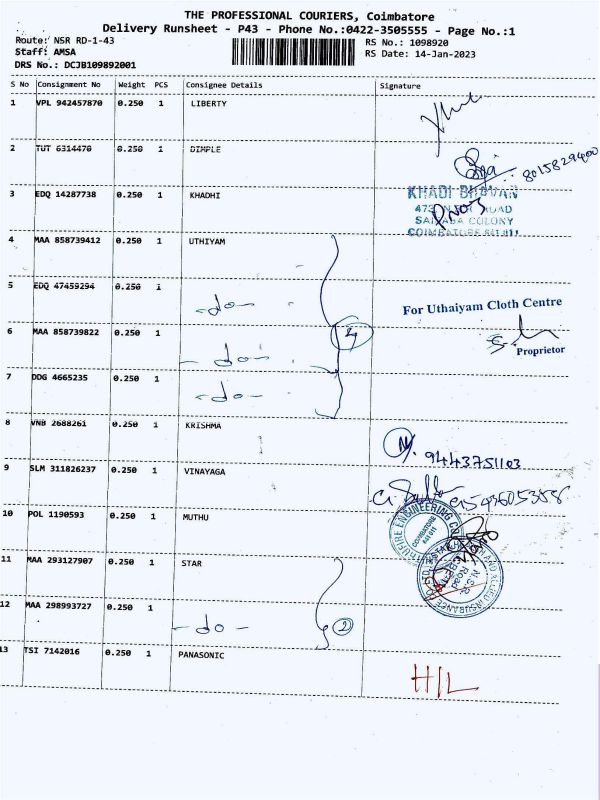 THE PROFESSIONAL COURIERS, Coimbatore
Delivery Runsheet - P43 - Phone No.:0422-3505555 - Page No.:1
Route: NSR RD-1-43
RS No.: 1098920
Staff: AMSA
RS Date: 14-Jan-2023
DRS No.: DCJB109892001
S No Consignment No Weight PCS Consignee Details Signature
1 VPL 942457870 0.250 1 LIBERTY
2 TUT 6314470 0.250 1 DIMPLE
8015829400
3 EDQ 14287738 0.250 1 KHADHI
KHADI BHAVAN
473 N.S.R ROAD
SAIBABA COLONY
COIMBATORE 641 011
4 MAA 858739412 0.250 1 UTHIYAM
5 EDQ 47459294 0.250 1 -do-
For Uthaiyam Cloth Centre
6 MAA 858739822 0.250 1 -do- 4
Proprietor
7 DDG 4665235 0.250 1 -do-
8 VNB 2688261 0.250 1 KRISHMA
9443751103
9 SLM 311826237 0.250 1 VINAYAGA
10 POL 1190593 0.250 1 MUTHU
ENGINEERING CO
COIMBATORE
11 MAA 293127907 0.250 1 STAR
STAR HEALTH AND ALLIED INSURANCE CO
N.S.R
Road
12 MAA 298993727 0.250 1 -do- 2
13 TSI 7142016 0.250 1 PANASONIC
H/L